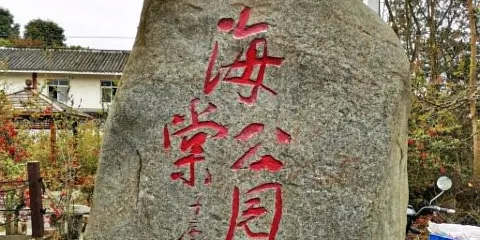 海棠公园